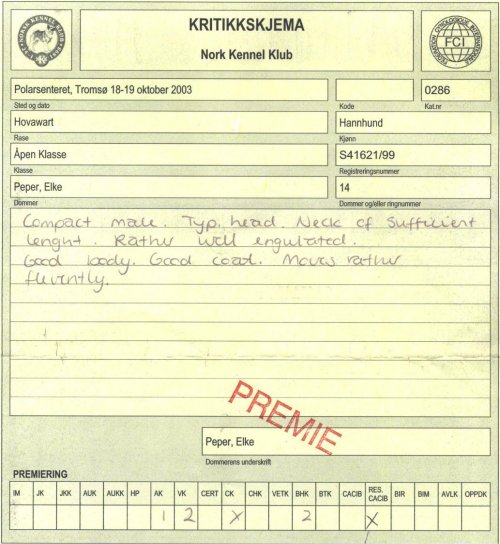 KRITIKKSKJEMA
Nork Kennel Klub
NORSK KENNEL KLUB
FEDERATION CYNOLOGIQUE INTERNATIONALE
FCI
Polarsenteret, Tromsø 18-19 oktober 2003
0286
Sted og dato
Kode
Kat.nr
Hovawart
Hannhund
Rase
Kjønn
Åpen Klasse
S41621/99
Klasse
Registreringsnummer
Peper, Elke
14
Dommer
Dommer og/eller ringnummer
Compact male. Typ. head. Neck of Sufficient
lenght. Rather well engulated.
Good body. Good coat. Moves rather
fluently.
PREMIE
Peper, Elke
Dommerens underskrift
PREMIERING
IM JK JKK AUK AUKK HP AK VK CERT CK CHK VETK BHK BTK CACIB RES. CACIB BIR BIM AVLK OPPDK
1 2 X 2 X